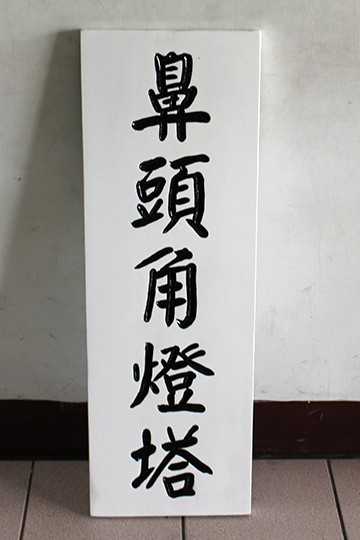 鼻頭角燈塔